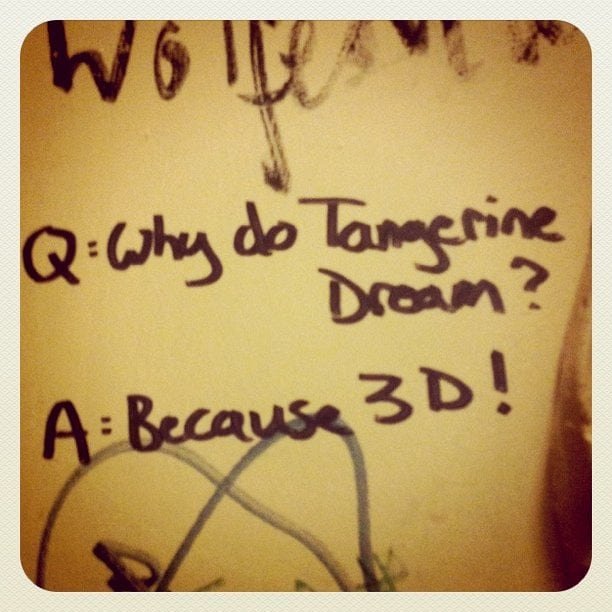 Q: Why do Tangerine
Dream?
A: Because 3D!